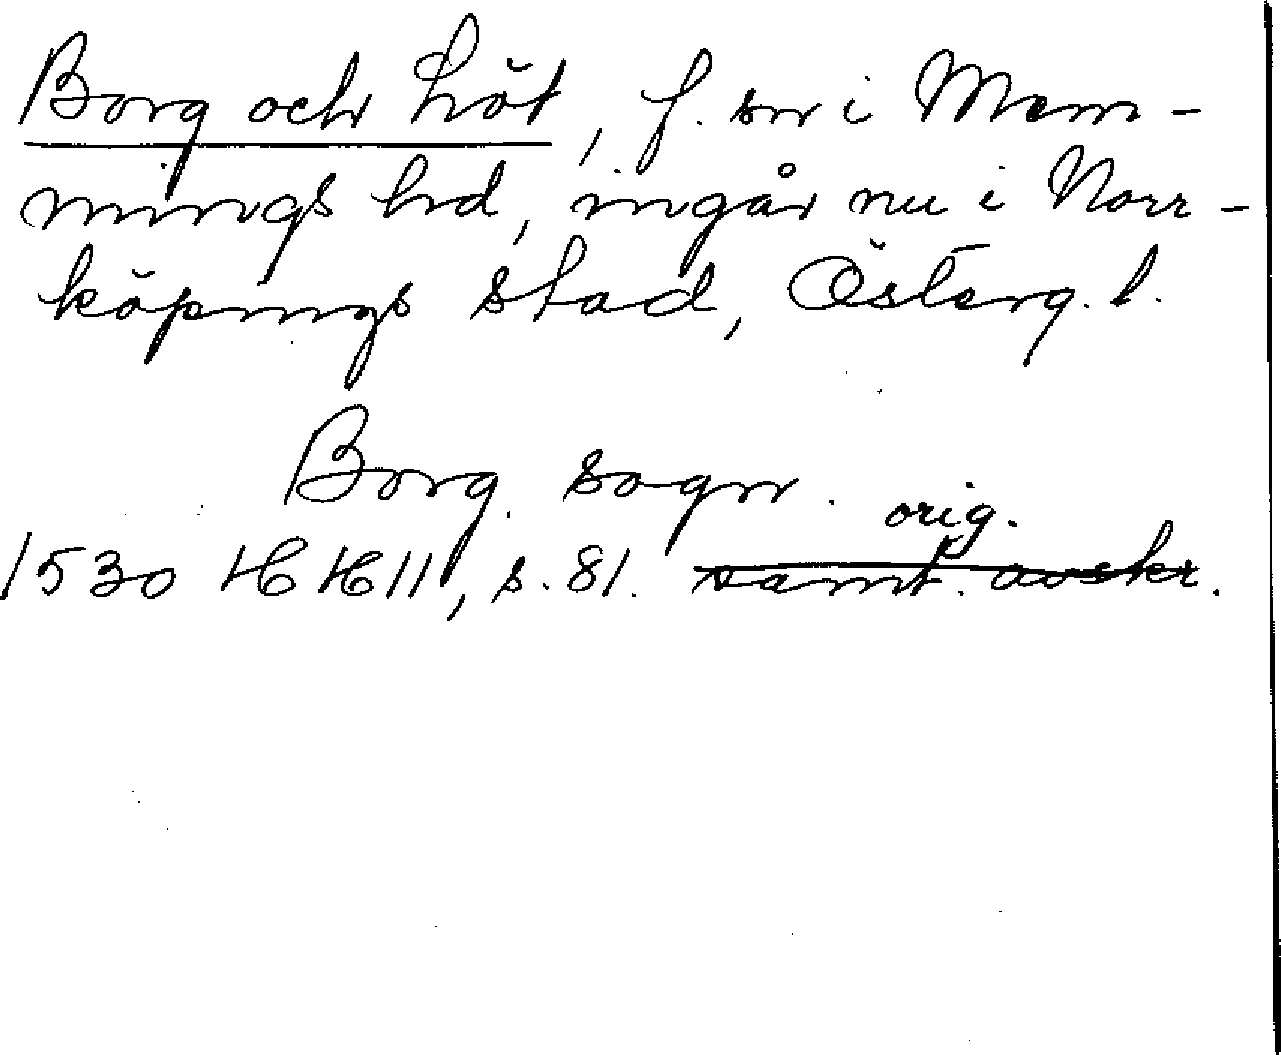 Borg och Löt, f. sn i Mem-
mings hd, ingår nu i Norr-
köpings stad, Österg. l.
Borg sogn.
orig.
1530 HH 11, s. 81. samt. avskr.